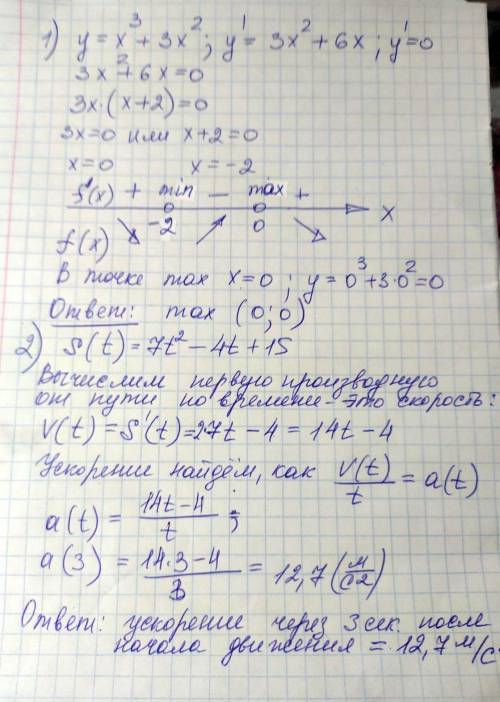 1) y = x³ + 3x²; y' = 3x² + 6x; y' = 0
3x² + 6x = 0
3x·(x+2) = 0
3x = 0 или x+2 = 0
x = 0 x = -2
f'(x) + min — max +
-2 0 x
f(x)
В точке max x = 0; y = 0³ + 3·0² = 0
Ответ: max (0; 0)
2) S(t) = 7t² - 4t + 15
Вычислим первую производную
от пути по времени - это скорость:
V(t) = S'(t) = 27t - 4 = 14t - 4
Ускорение найдём, как V(t)/t = a(t)
a(t) = (14t - 4)/t ;
a(3) = (14·3 - 4)/3 = 12,7 (м/с2)
Ответ: ускорение через 3 сек. после
начала движения = 12,7 м/с